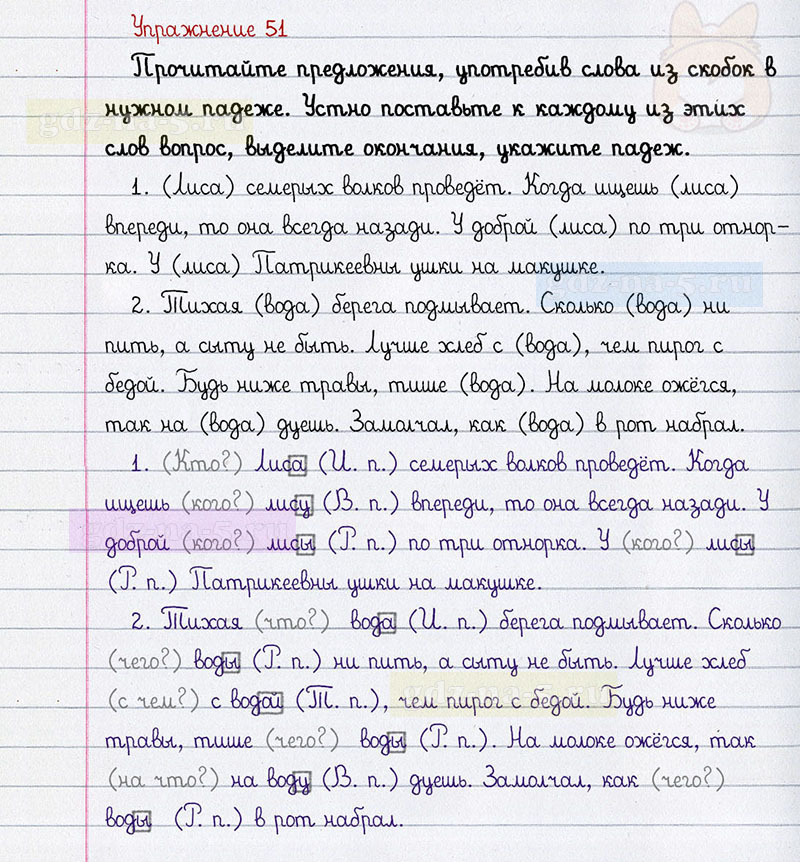 Упражнение 51
Прочитайте предложения, употребив слова из скобок в
нужном падеже. Устно поставьте к каждому из этих
слов вопрос, выделите окончания, укажите падеж.
1. (Лиса) семерых волков проведёт. Когда ищешь (лиса)
впереди, то она всегда назади. У доброй (лиса) по три отнор-
ка. У (лиса) Патрикеевны ушки на макушке.
2. Тихая (вода) берега подмывает. Сколько (вода) ни
пить, а сыту не быть. Лучше хлеб с (вода), чем пирог с
бедой. Будь ниже травы, тише (вода). На молоке ожёгся,
так на (вода) дуешь. Замолчал, как (вода) в рот набрал.
1. (Кто?) Лиса (И. п.) семерых волков проведёт. Когда
ищешь (кого?) лису (В. п.) впереди, то она всегда назади. У
доброй (кого?) лисы (Р. п.) по три отнорка. У (кого?) лисы
(Р. п.) Патрикеевны ушки на макушке.
2. Тихая (что?) вода (И. п.) берега подмывает. Сколько
(чего?) воды (Р. п.) ни пить, а сыту не быть. Лучше хлеб
(с чем?) с водой (Т. п.), чем пирог с бедой. Будь ниже
травы, тише (чего?) воды (Р. п.). На молоке ожёгся, так
(на что?) на воду (В. п.) дуешь. Замолчал, как (чего?)
воды (Р. п.) в рот набрал.
gdz-na-5.ru
gdz-na-5.ru
gdz-na-5.ru
gdz-na-5.ru